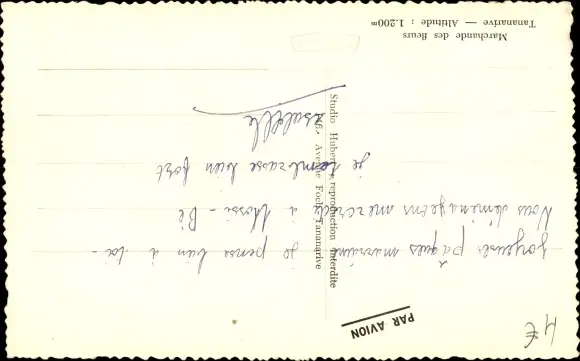 4€
PAR AVION
Joyeuses pâques marraine je pense bien à toi -
Nous déménageons mercredi à Nossi - Bé
je t'embrasse bien fort
Isabelle
Studio Hubert - reproduction interdite
Avenue Foch, Tananarive
Marchande des fleurs
Tananarive — Altitude : 1.200m